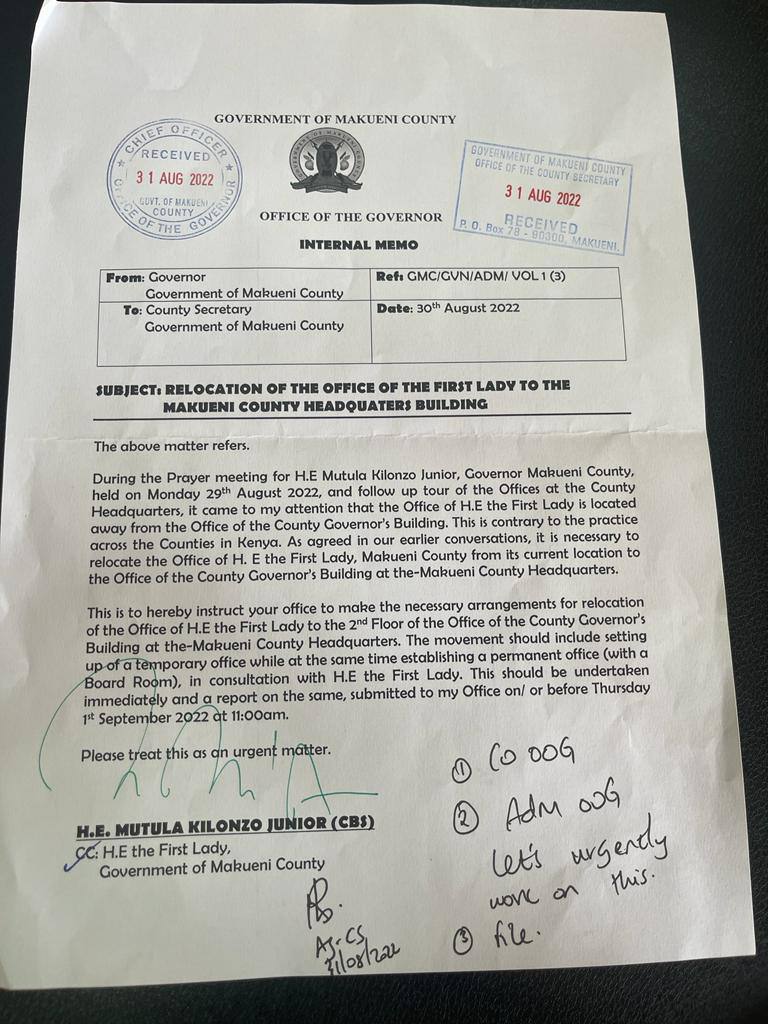 GOVERNMENT OF MAKUENI COUNTY
CHIEF OFFICER
RECEIVED
31 AUG 2022
GOVT. OF MAKUENI
COUNTY
OFFICE OF THE GOVERNOR
GOVERNMENT OF MAKUENI COUNTY
OFFICE OF THE COUNTY SECRETARY
31 AUG 2022
RECEIVED
P. O. Box 78 - 90300, MAKUENI.
OFFICE OF THE GOVERNOR
INTERNAL MEMO
From: Governor
Government of Makueni County
Ref: GMC/GVN/ADM/ VOL 1 (3)
To: County Secretary
Government of Makueni County
Date: 30th August 2022
SUBJECT: RELOCATION OF THE OFFICE OF THE FIRST LADY TO THE
MAKUENI COUNTY HEADQUATERS BUILDING
The above matter refers.
During the Prayer meeting for H.E Mutula Kilonzo Junior, Governor Makueni County,
held on Monday 29th August 2022, and follow up tour of the Offices at the County
Headquarters, it came to my attention that the Office of H.E the First Lady is located
away from the Office of the County Governor's Building. This is contrary to the practice
across the Counties in Kenya. As agreed in our earlier conversations, it is necessary to
relocate the Office of H. E the First Lady, Makueni County from its current location to
the Office of the County Governor's Building at the-Makueni County Headquarters.
This is to hereby instruct your office to make the necessary arrangements for relocation
of the Office of H.E the First Lady to the 2nd Floor of the Office of the County Governor's
Building at the-Makueni County Headquarters. The movement should include setting
up of a temporary office while at the same time establishing a permanent office (with a
Board Room), in consultation with H.E the First Lady. This should be undertaken
immediately and a report on the same, submitted to my Office on/ or before Thursday
1st September 2022 at 11:00am.
Please treat this as an urgent matter.
H.E. MUTULA KILONZO JUNIOR (CBS)
CC: H.E the First Lady,
Government of Makueni County
① CO OOG
② Adm OOG
Let's urgently
work on this.
③ file.
Ag. CS
31/08/2022